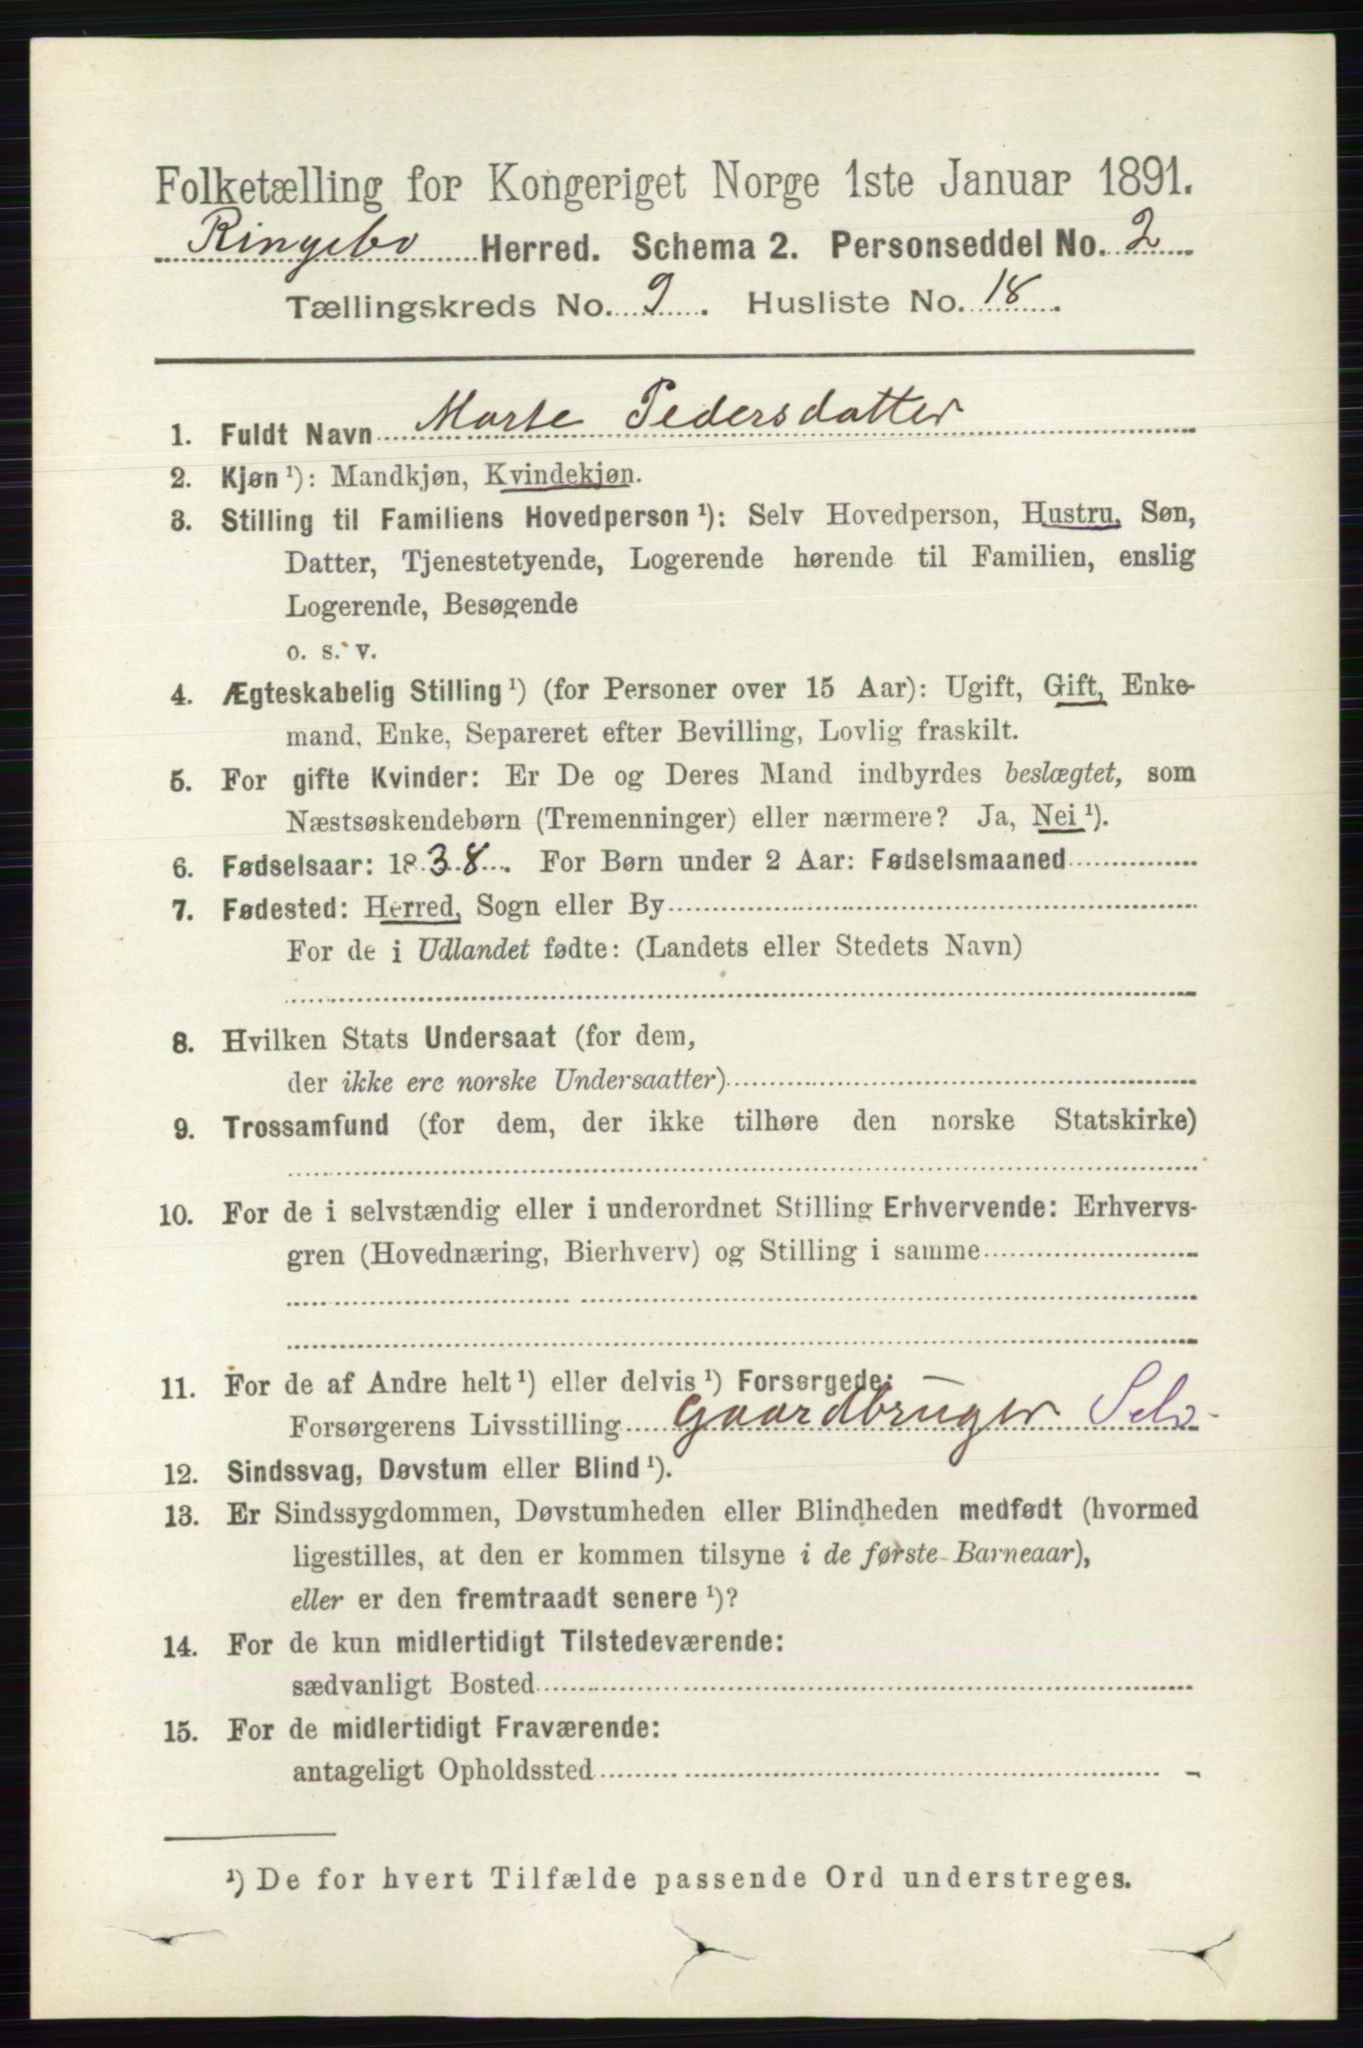 Folketælling for Kongeriget Norge 1ste Januar 1891.
Ringebo Herred. Schema 2. Personseddel No. 2
Tællingskreds No. 9. Husliste No. 18.
1. Fuldt Navn Marte Pedersdatter
2. Kjøn ¹): Mandkjøn, Kvindekjøn.
3. Stilling til Familiens Hovedperson ¹): Selv Hovedperson, Hustru, Søn,
Datter, Tjenestetyende, Logerende hørende til Familien, enslig
Logerende, Besøgende
o. s. v.
4. Ægteskabelig Stilling ¹) (for Personer over 15 Aar): Ugift, Gift, Enke-
mand, Enke, Separeret efter Bevilling, Lovlig fraskilt.
5. For gifte Kvinder: Er De og Deres Mand indbyrdes beslægtet, som
Næstsøskendebørn (Tremenninger) eller nærmere? Ja, Nei ¹).
6. Fødselsaar: 1838. For Børn under 2 Aar: Fødselsmaaned
7. Fødested: Herred, Sogn eller By
For de i Udlandet fødte: (Landets eller Stedets Navn)
8. Hvilken Stats Undersaat (for dem,
der ikke ere norske Undersaatter)
9. Trossamfund (for dem, der ikke tilhøre den norske Statskirke)
10. For de i selvstændig eller i underordnet Stilling Erhvervende: Erhvervs-
gren (Hovednæring, Bierhverv) og Stilling i samme
11. For de af Andre helt ¹) eller delvis ¹) Forsørgede:
Forsørgerens Livsstilling Gaardbruger Selv.
12. Sindssvag, Døvstum eller Blind ¹).
13. Er Sindssygdommen, Døvstumheden eller Blindheden medfødt (hvormed
ligestilles, at den er kommen tilsyne i de første Barneaar),
eller er den fremtraadt senere ¹)?
14. For de kun midlertidigt Tilstedeværende:
sædvanligt Bosted
15. For de midlertidigt Fraværende:
antageligt Opholdssted
¹) De for hvert Tilfælde passende Ord understreges.